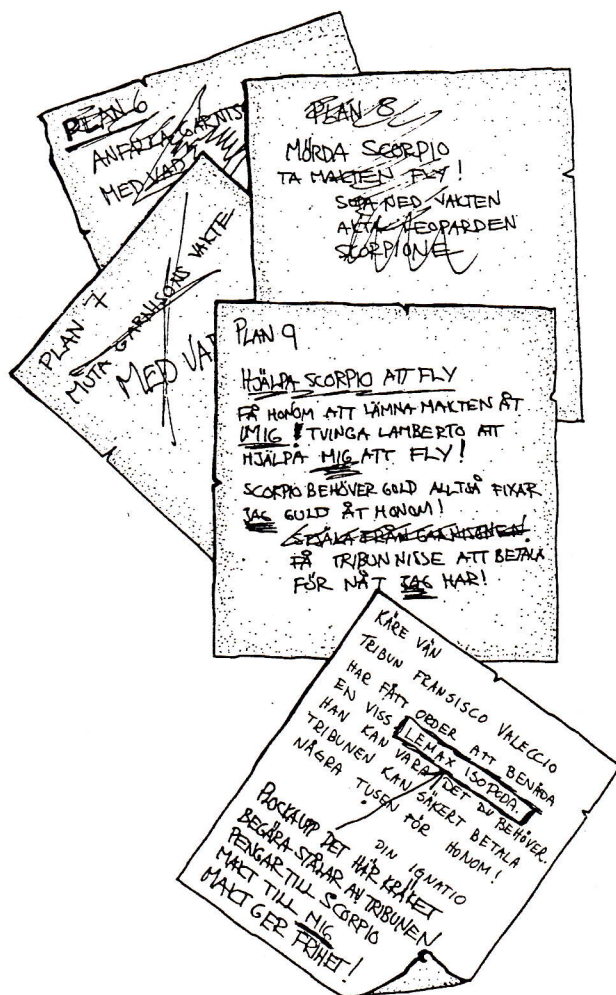 PLAN 6
ANFALLA GARNIS
MED VAD
PLAN 7
MUTA GARNISONS VAKTE
MED VAD
PLAN 8
MÖRDA SCORPIO
TA MAKTEN FLY!
SUPA NED VAKTEN
AKTA LEOPARDEN
SCORPIONE
PLAN 9
HJÄLPA SCORPIO ATT FLY
FÅ HONOM ATT LÄMNA MAKTEN ÅT
MIG! TVINGA LAMBERTO ATT
HJÄLPA MIG ATT FLY!
SCORPIO BEHÖVER GULD ALLTSÅ FIXAR
JAG GULD ÅT HONOM!
STJÄLA FRÅN GARNISONEN!
FÅ TRIBUN NISSE ATT BETALA
FÖR NÅT JAG HAR!
KÄRE VÄN
TRIBUN FRANSISCO VALECCIO
HAR FÅTT ORDER ATT BENÅDA
EN VISS LEMAX ISOPODA.
HAN KAN VARA DET DU BEHÖVER.
TRIBUNEN KAN SÄKERT BETALA
NÅGRA TUSEN FÖR HONOM!
DIN IGNATIO
PLOCKA UPP DET HÄR KRÄKET
BEGÄRA STÅLAR AV TRIBUNEN
PENGAR TILL SCORPIO
MAKT TILL MIG
MAKT GER FRIHET!